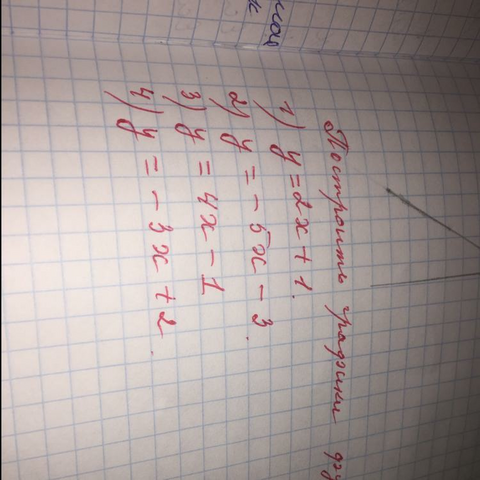 Построить графики
1) y = 2x + 1.
2) y = - 5x - 3.
3) y = 4x - 1
4) y = - 3x + 2.